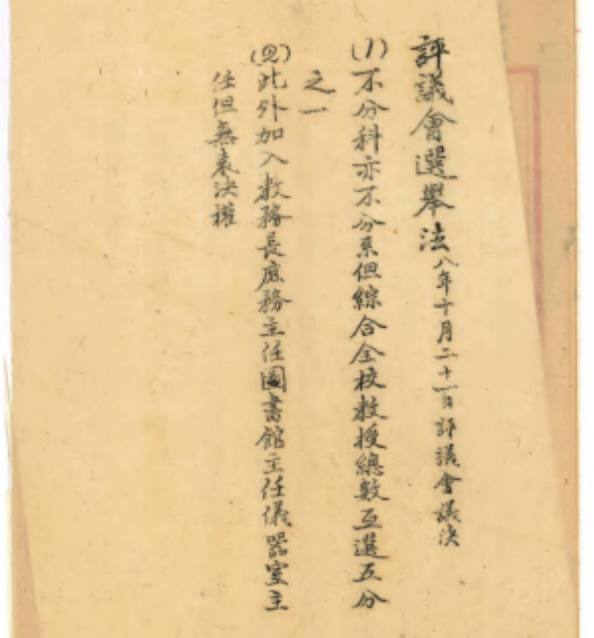 評議會選舉法 八年十月二十一日評議會議決
(1)不分科亦不分系但綜合全校教授總數互選五分
之一
(2)此外加入教務長庶務主任圖書館主任儀器室主
任但無表決權